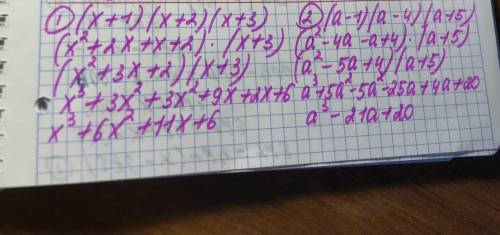 ① (x+1)(x+2)(x+3)
(x²+2x+x+2)·(x+3)
(x²+3x+2)(x+3)
x³+3x²+3x²+9x+2x+6
x³+6x²+11x+6
② (a-1)(a-4)(a+5)
(a²-4a-a+4)·(a+5)
(a²-5a+4)(a+5)
a³+5a²-5a²-25a+4a+20
a³-21a+20